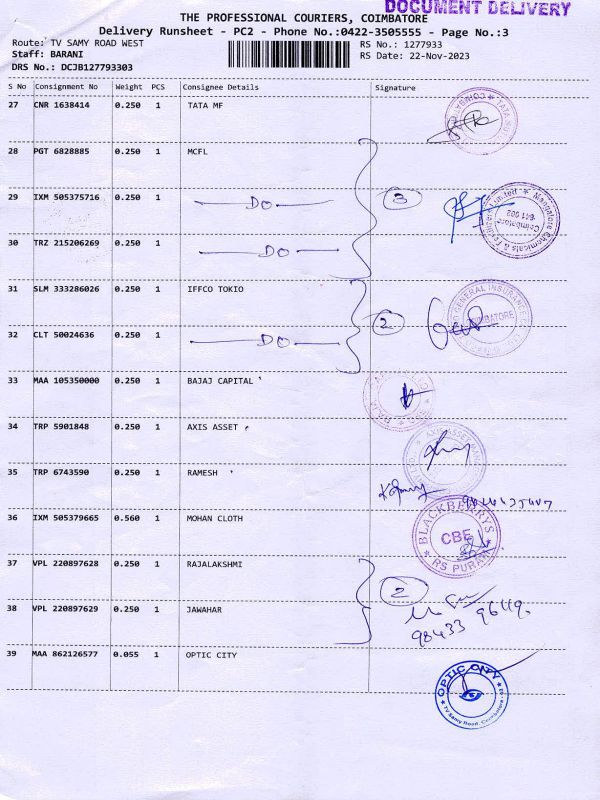 DOCUMENT DELIVERY
THE PROFESSIONAL COURIERS, COIMBATORE
Delivery Runsheet - PC2 - Phone No.:0422-3505555 - Page No.:3
Route: TV SAMY ROAD WEST
RS No.: 1277933
Staff: BARANI
RS Date: 22-Nov-2023
DRS No.: DCJB127793303
S No Consignment No Weight PCS Consignee Details Signature
27 CNR 1638414 0.250 1 TATA MF
28 PGT 6828885 0.250 1 MCFL
29 IXM 505375716 0.250 1 DO 3
Mangalore Chemicals & Limited
Coimbatore
641 002
30 TRZ 215206269 0.250 1 DO
31 SLM 333286026 0.250 1 IFFCO TOKIO
GENERAL INSURANCE
COIMBATORE
32 CLT 50024636 0.250 1 DO 2
33 MAA 105350000 0.250 1 BAJAJ CAPITAL
34 TRP 5901848 0.250 1 AXIS ASSET
AXIS ASSET
35 TRP 6743590 0.250 1 RAMESH
36 IXM 505379665 0.560 1 MOHAN CLOTH
BLACKBERRYS
CBE
RS PURAM
37 VPL 220897628 0.250 1 RAJALAKSHMI
2
38 VPL 220897629 0.250 1 JAWAHAR
98433 9649.
39 MAA 862126577 0.055 1 OPTIC CITY
OPTIC CITY
TV Samy Road, Coimbatore - 02